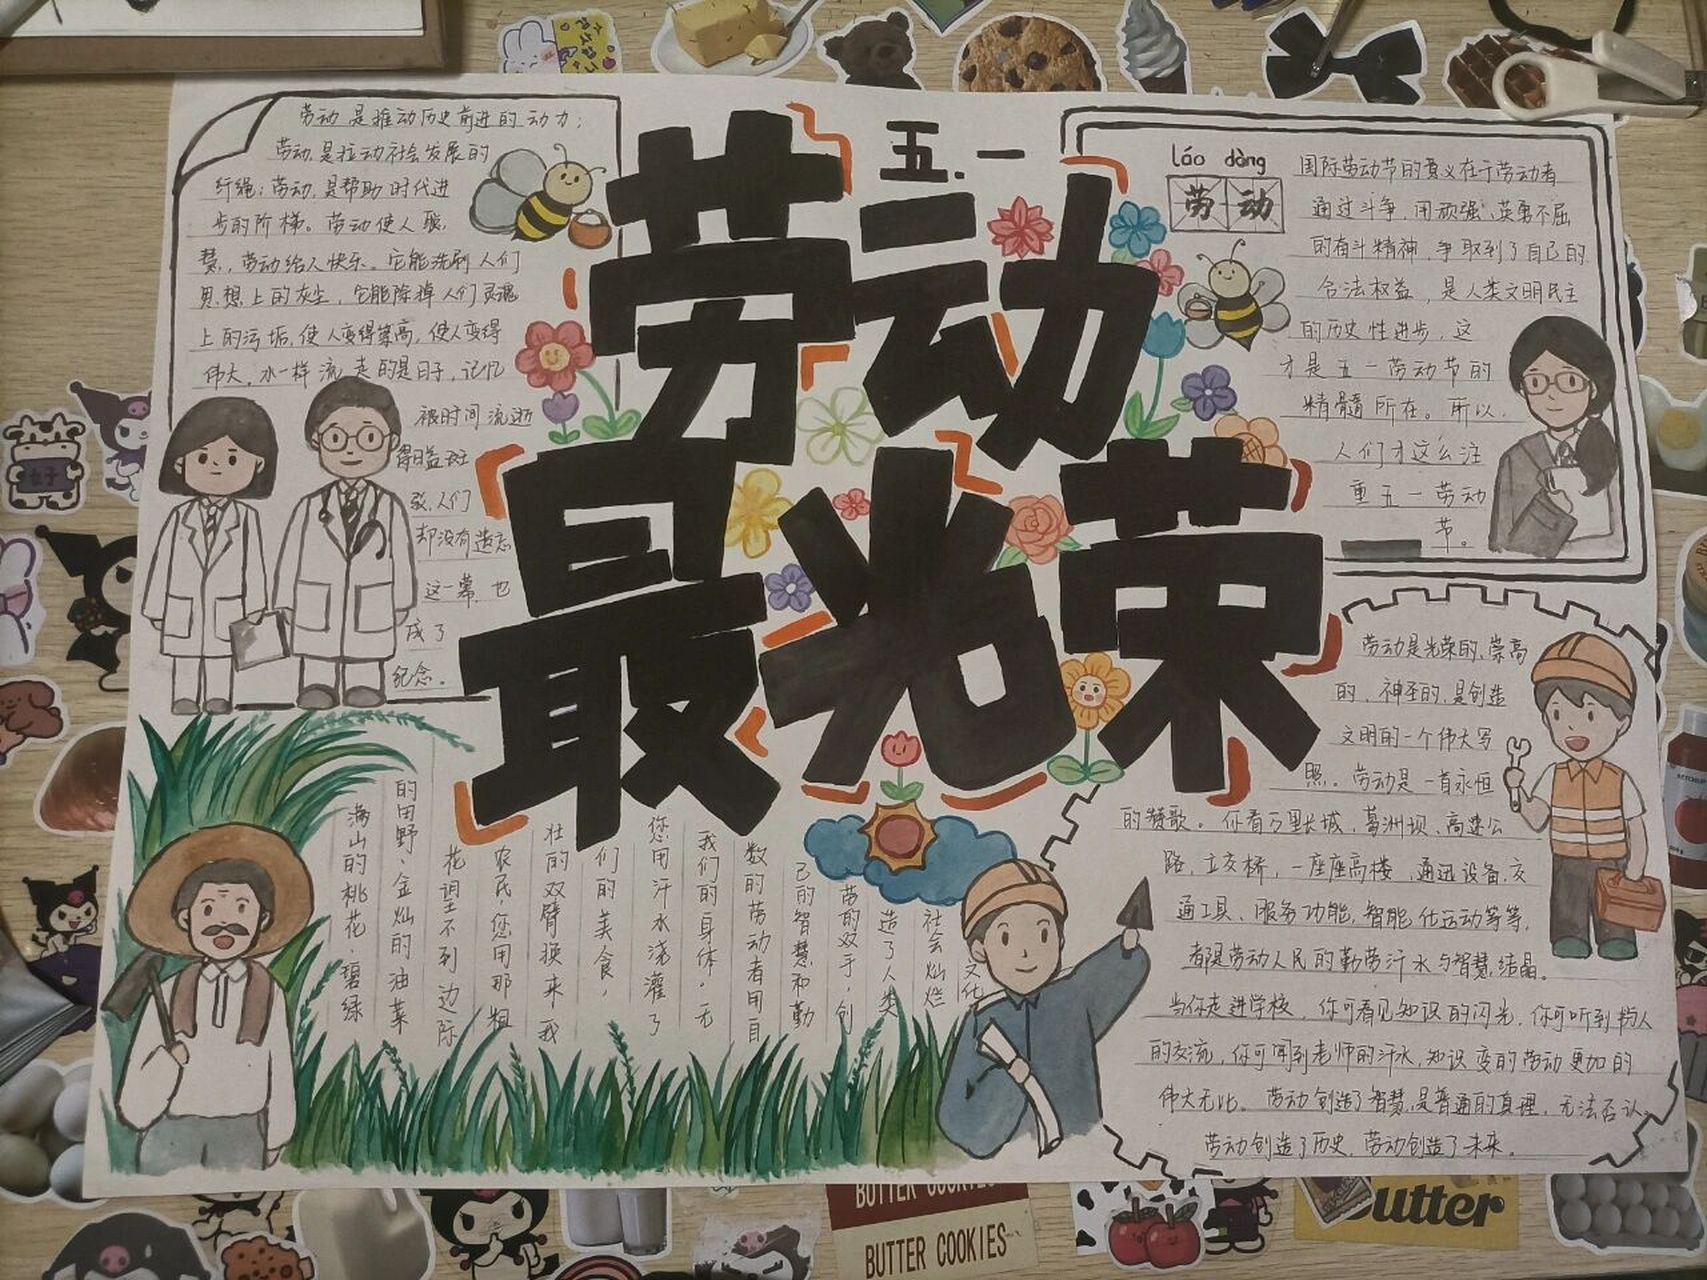 五.一
劳动
最光荣
劳动是推动历史前进的动力；
劳动是拉动社会发展的
纤绳；劳动是帮助时代进
步的阶梯。劳动使人聪
慧，劳动给人快乐。它能洗刷人们
思想上的灰尘，它能除掉人们灵魂
上的污垢，使人变得崇高，使人变得
伟大。水一样流走的是日子，记忆
被时间流逝
得日益斑
驳，人们
却没有遗忘
这一幕，也
成了
纪念。
láo dòng
劳动
国际劳动节的意义在于劳动者
通过斗争，用顽强、英勇不屈
的奋斗精神，争取到了自己的
合法权益，是人类文明民主
的历史性进步，这
才是五一劳动节的
精髓所在。所以，
人们才这么注
重五一劳动
节。
满山的桃花，碧绿
的田野、金灿的油菜
花望不到边际
农民，您用那粗
壮的双臂换来，我
们的美食，
您用汗水浇灌了
我们的身体。无
数的劳动者用自
己的智慧和勤
劳的双手，创
造了人类
社会灿烂
文化
劳动是光荣的、崇高
的、神圣的，是创造
文明的一个伟大写
照。劳动是一首永恒
的赞歌。你看万里长城，葛洲坝、高速公
路，立交桥，一座座高楼，通迅设备，交
通工具、服务功能，智能化运动等等，
都是劳动人民的勤劳汗水与智慧结晶。
当你走进学校，你可看见知识的闪光，你可听到
的交流，你可闻到老师的汗水，知识变的劳动更加的
伟大无比。劳动创造了智慧，是普通的真理，无法否认。
劳动创造了历史，劳动创造了未来。
BUTTER COOKIES
BUTTER COOKIES
Butter